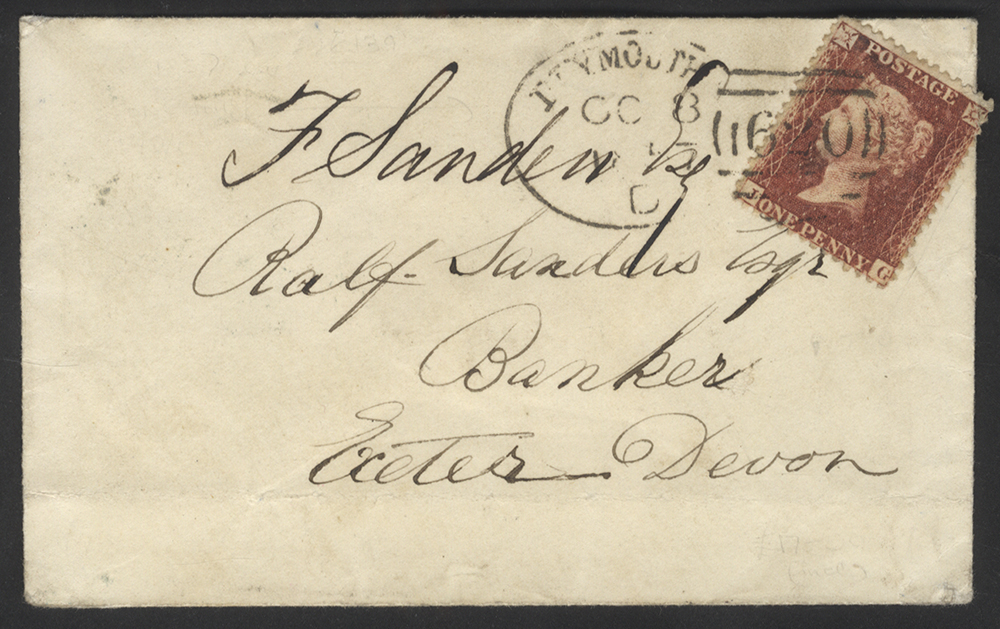 PLYMOUTH
OC 8
D
620
POSTAGE
ONE PENNY
J G
F Sanders Esq
Ralf Sanders Esqr
Banker
Exeter Devon